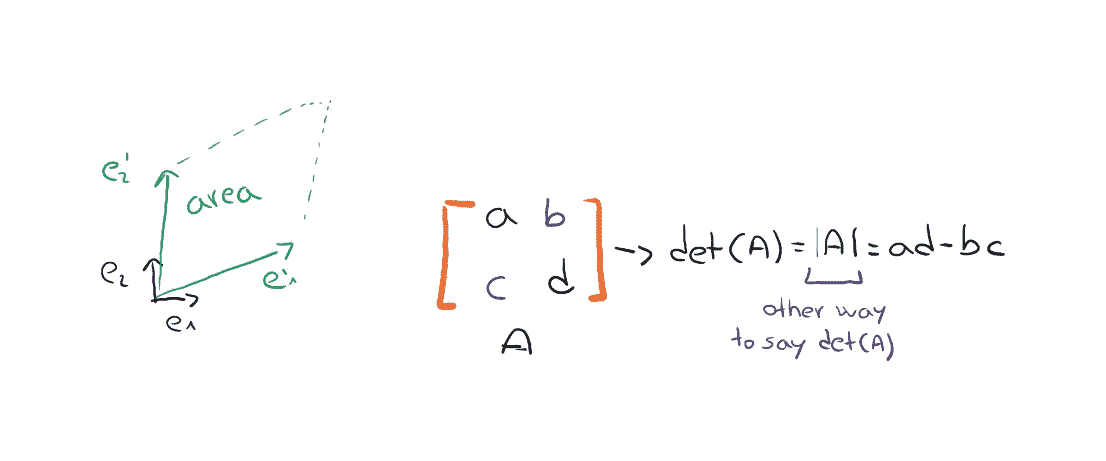 e₂'
area
e₂
e₁'
e₁
a b
c d
A
→ det(A) = |A| = ad-bc
other way
to say det(A)